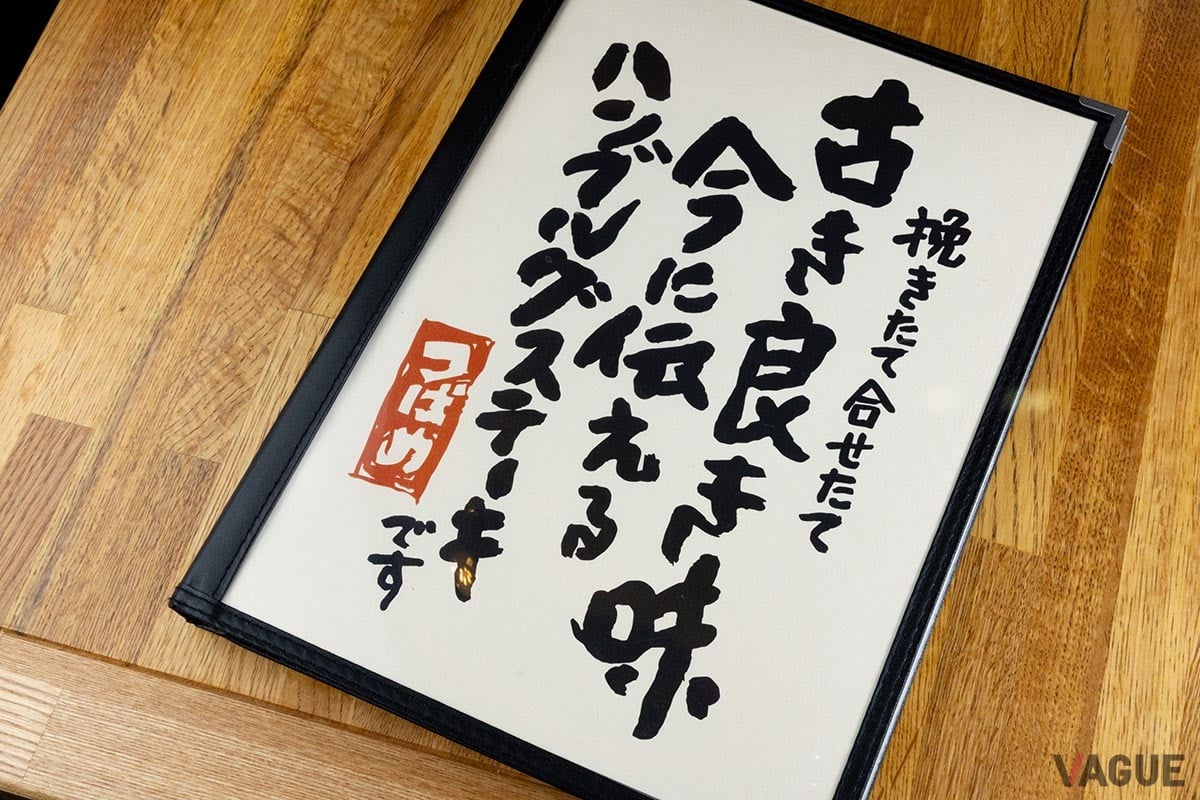 挽きたて合せたて
古き良き味
今に伝える
ハンブルグステーキ
です
つばめ
VAGUE